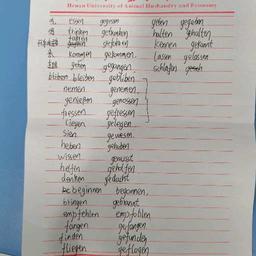 Henan University of Animal Husbandry and Economy
essen gegessen geben gegeben
trinken getrunken halten gehalten
fahren gefahren kennen gekannt
kommen gekommen lassen gelassen
gehen gegangen schlafen
bleiben geblieben
nemen genomen
genießen genossen
fressen gefressen
liegen gelegen
sein gewesen
heben gehoben
wissen gewusst
helfen geholfen
denken gedacht
beginnen begonnen
bringen gebrannt
empfehlen empfollen
fangen gefangen
finden gefunden
fliegen geflogen